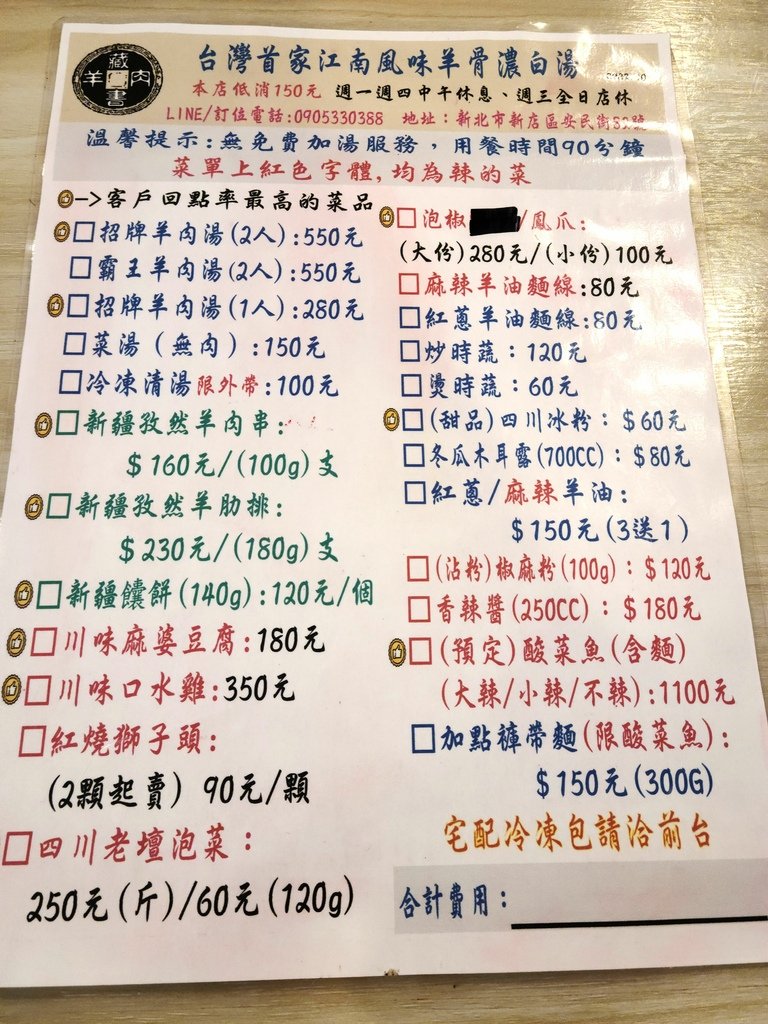 藏
羊 肉
書
台灣首家江南風味羊骨濃白湯
本店低消150元 週一週四中午休息、週三全日店休
LINE/訂位電話:0905330388 地址：新北市新店區安民街82號
溫馨提示:無免費加湯服務，用餐時間90分鐘
菜單上紅色字體,均為辣的菜
->客戶回點率最高的菜品
招牌羊肉湯(2人):550元
霸王羊肉湯(2人):550元
招牌羊肉湯(1人):280元
菜湯(無肉):150元
冷凍清湯限外帶:100元
新疆孜然羊肉串:
$160元/(100g)支
新疆孜然羊肋排:
$230元/(180g)支
新疆饢餅(140g):120元/個
川味麻婆豆腐:180元
川味口水雞:350元
紅燒獅子頭:
(2顆起賣) 90元/顆
四川老壇泡菜:
250元(斤)/60元(120g)
泡椒 /鳳爪:
(大份)280元/(小份)100元
麻辣羊油麵線:80元
紅蔥羊油麵線:80元
炒時蔬：120元
燙時蔬：60元
(甜品)四川冰粉：$60元
冬瓜木耳露(700CC)：$80元
紅蔥/麻辣羊油:
$150元(3送1)
(沾粉)椒麻粉(100g)：$120元
香辣醬(250CC)：$180元
(預定)酸菜魚(含麵)
(大辣/小辣/不辣):1100元
加點褲帶麵(限酸菜魚):
$150元(300G)
宅配冷凍包請洽前台
合計費用: